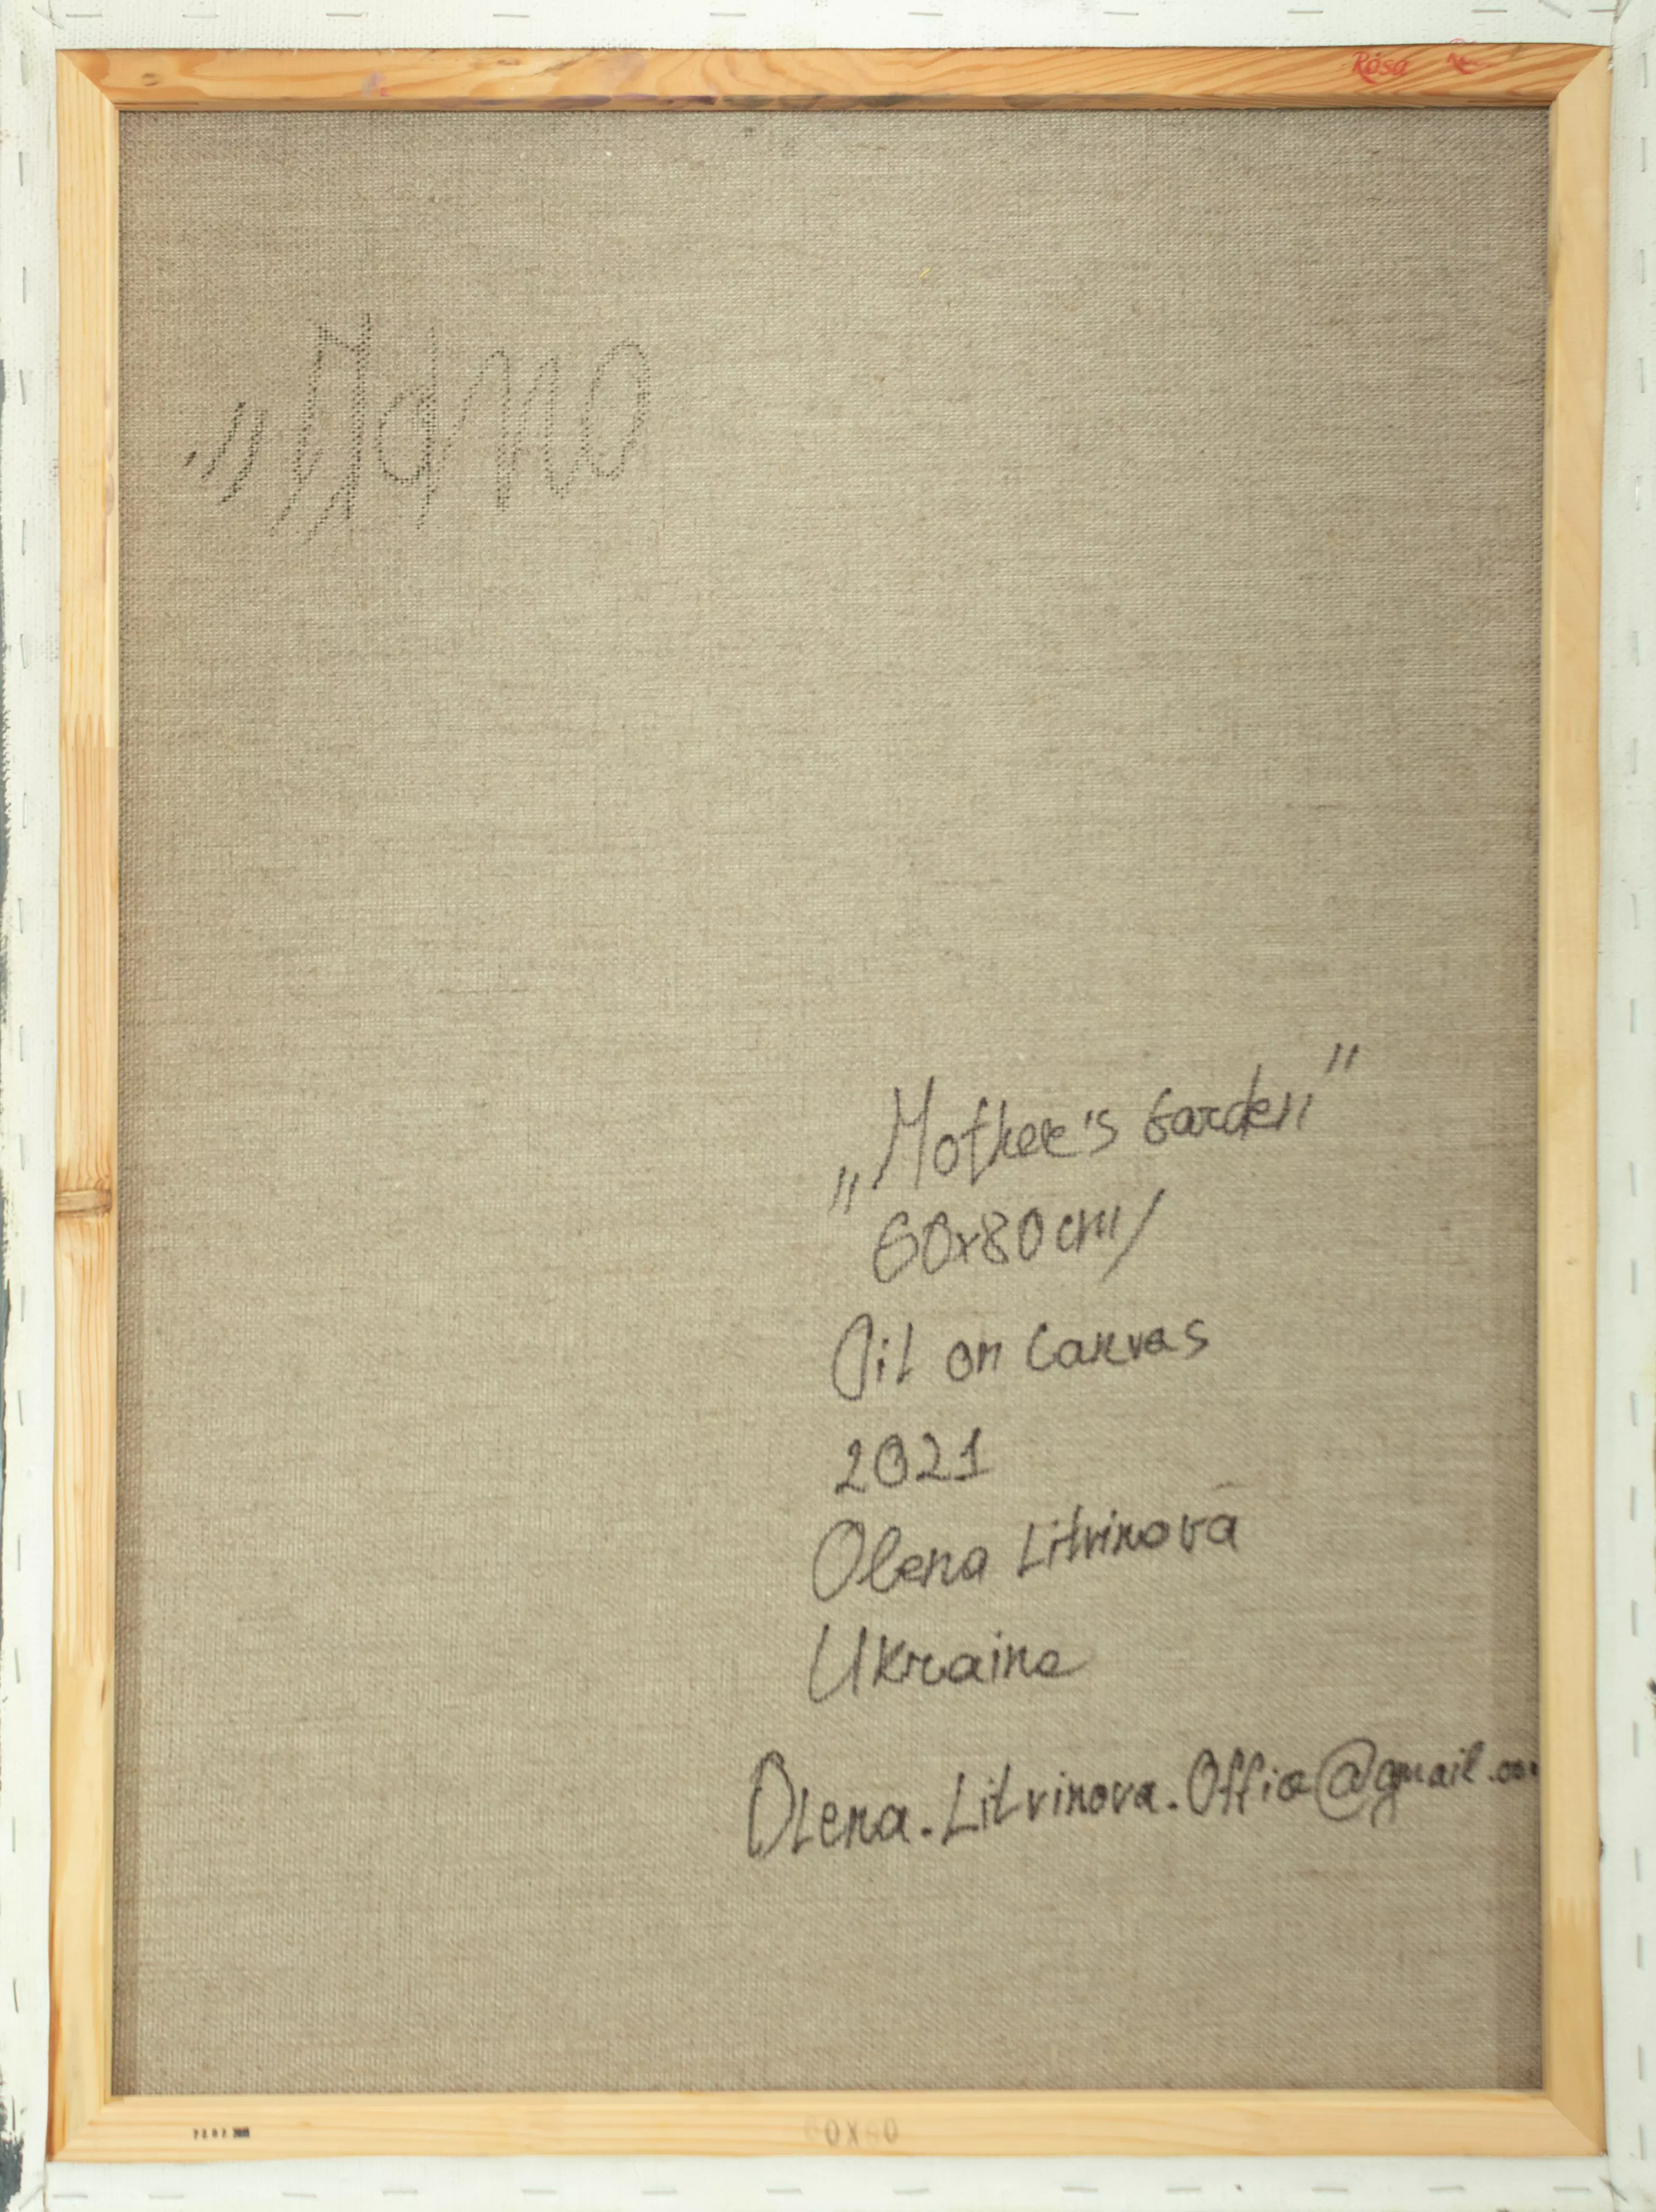 Rosa
„Mother's Garden"
60x80cm/
Oil on Canvas
2021
Olena Litvinova
Ukraine
Olena.Litvinova.Office@gmail.com